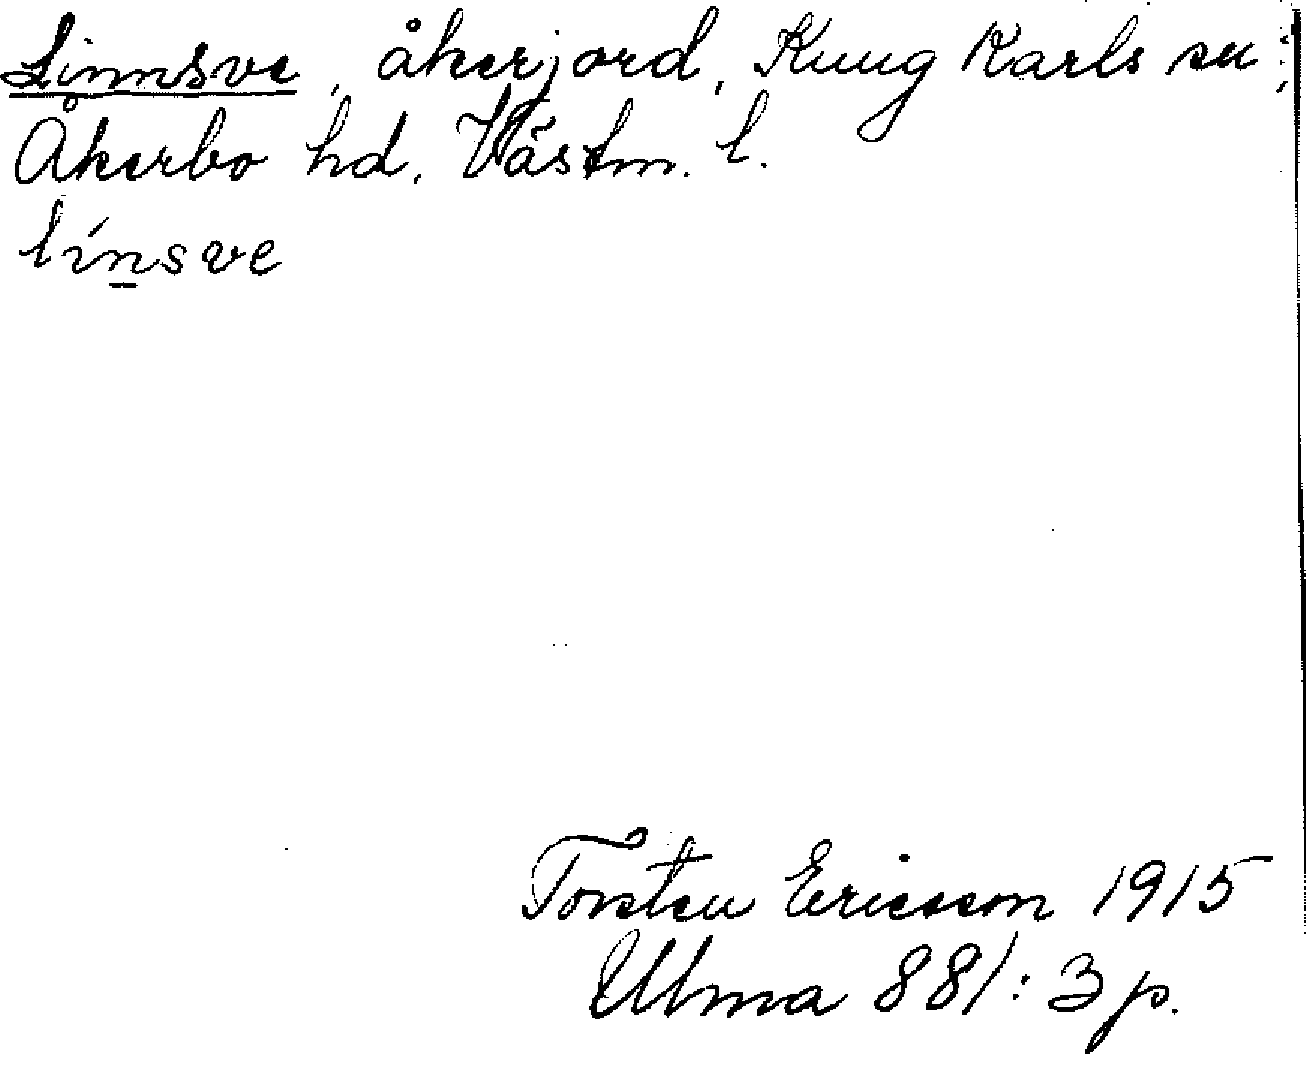 Linnsve, åkerjord, Kung Karls sn;
Åkerbo hd, Västm. l.
línsve
Torsten Ericsson 1915
Ulma 881:3 p.